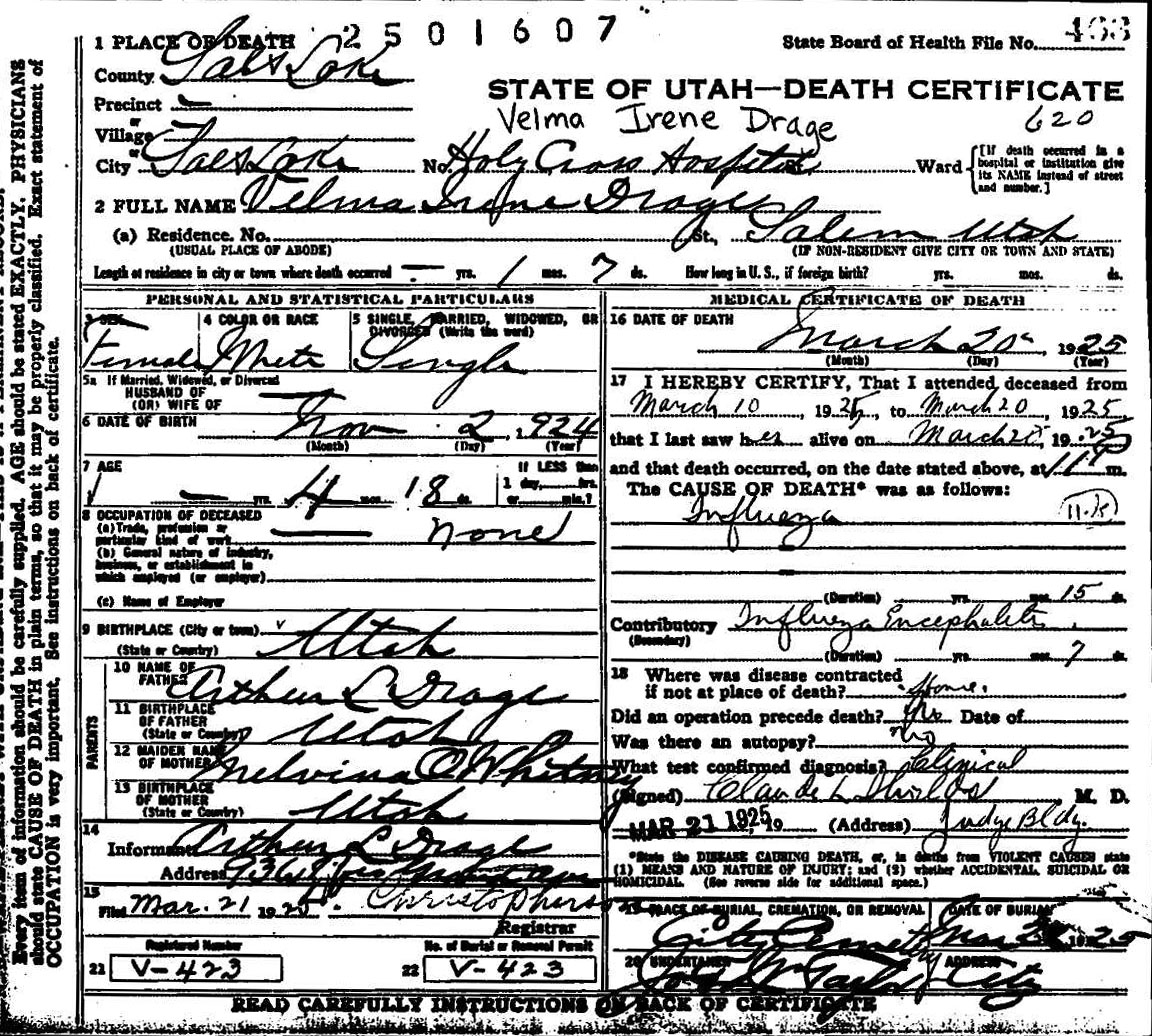 2501607
1 PLACE OF DEATH
State Board of Health File No. 463
County Salt Lake
STATE OF UTAH—DEATH CERTIFICATE
Precinct —
or
Velma Irene Drage 620
Village
or
City Salt Lake No. Holy Cross Hospital St. Ward [If death occurred in a hospital or institution give its NAME instead of street and number.]
2 FULL NAME Velma Irene Drage
(a) Residence. No. St., Salem Utah
(USUAL PLACE OF ABODE) (IF NON-RESIDENT GIVE CITY OR TOWN AND STATE)
Length of residence in city or town where death occurred — yrs. 1 mos. 7 ds. How long in U. S., if foreign birth? yrs. mos. ds.
PERSONAL AND STATISTICAL PARTICULARS
3 SEX 4 COLOR OR RACE 5 SINGLE, MARRIED, WIDOWED, OR DIVORCED (Write the word)
Female White Single
5a If Married, Widowed, or Divorced
HUSBAND OF
(OR) WIFE OF —
6 DATE OF BIRTH Nov 2, 1924
(Month) (Day) (Year)
7 AGE If LESS than
— yrs. 4 mos. 18 ds. 1 day, hrs.
or min.?
8 OCCUPATION OF DECEASED
(a) Trade, profession or
particular kind of work — none
(b) General nature of industry,
business, or establishment in
which employed (or employer)
(c) Name of Employer
9 BIRTHPLACE (City or town)
(State or Country) Utah
PARENTS
10 NAME OF
FATHER Arthur L Drage
11 BIRTHPLACE
OF FATHER
(State or Country) Utah
12 MAIDEN NAME
OF MOTHER Melvina O Whitney
13 BIRTHPLACE
OF MOTHER
(State or Country) Utah
14
Informant Arthur L Drage
Address
15
Filed Mar. 21 1925 Christopherson
Registrar
Registered Number No. of Burial or Removal Permit
21 V-423 22 V-423
MEDICAL CERTIFICATE OF DEATH
16 DATE OF DEATH
March 20 1925
(Month) (Day) (Year)
17 I HEREBY CERTIFY, That I attended deceased from
March 10, 1925, to March 20, 1925,
that I last saw her alive on March 20, 1925
and that death occurred, on the date stated above, at 11 P m.
The CAUSE OF DEATH* was as follows:
Influenza
(Duration) yrs. mos. 15 ds.
Contributory Influenza Encephalitis
(Secondary)
(Duration) yrs. mos. 7 ds.
18 Where was disease contracted
if not at place of death? Home.
Did an operation precede death? No Date of
Was there an autopsy? No
What test confirmed diagnosis? Clinical
(Signed) Claude L Shields M. D.
MAR 21 1925, 19 (Address) Judge Bldg.
*State the DISEASE CAUSING DEATH, or, in deaths from VIOLENT CAUSES state
(1) MEANS AND NATURE OF INJURY; and (2) whether ACCIDENTAL, SUICIDAL OR
HOMICIDAL. (See reverse side for additional space.)
19 PLACE OF BURIAL, CREMATION, OR REMOVAL DATE OF BURIAL
City Cemetery Mar 1925
20 UNDERTAKER ADDRESS
Taylor City
READ CAREFULLY INSTRUCTIONS ON BACK OF CERTIFICATE
Every item of information should be carefully supplied. AGE should be stated EXACTLY. PHYSICIANS
should state CAUSE OF DEATH in plain terms, so that it may be properly classified. Exact statement of
OCCUPATION is very important. See instructions on back of certificate.